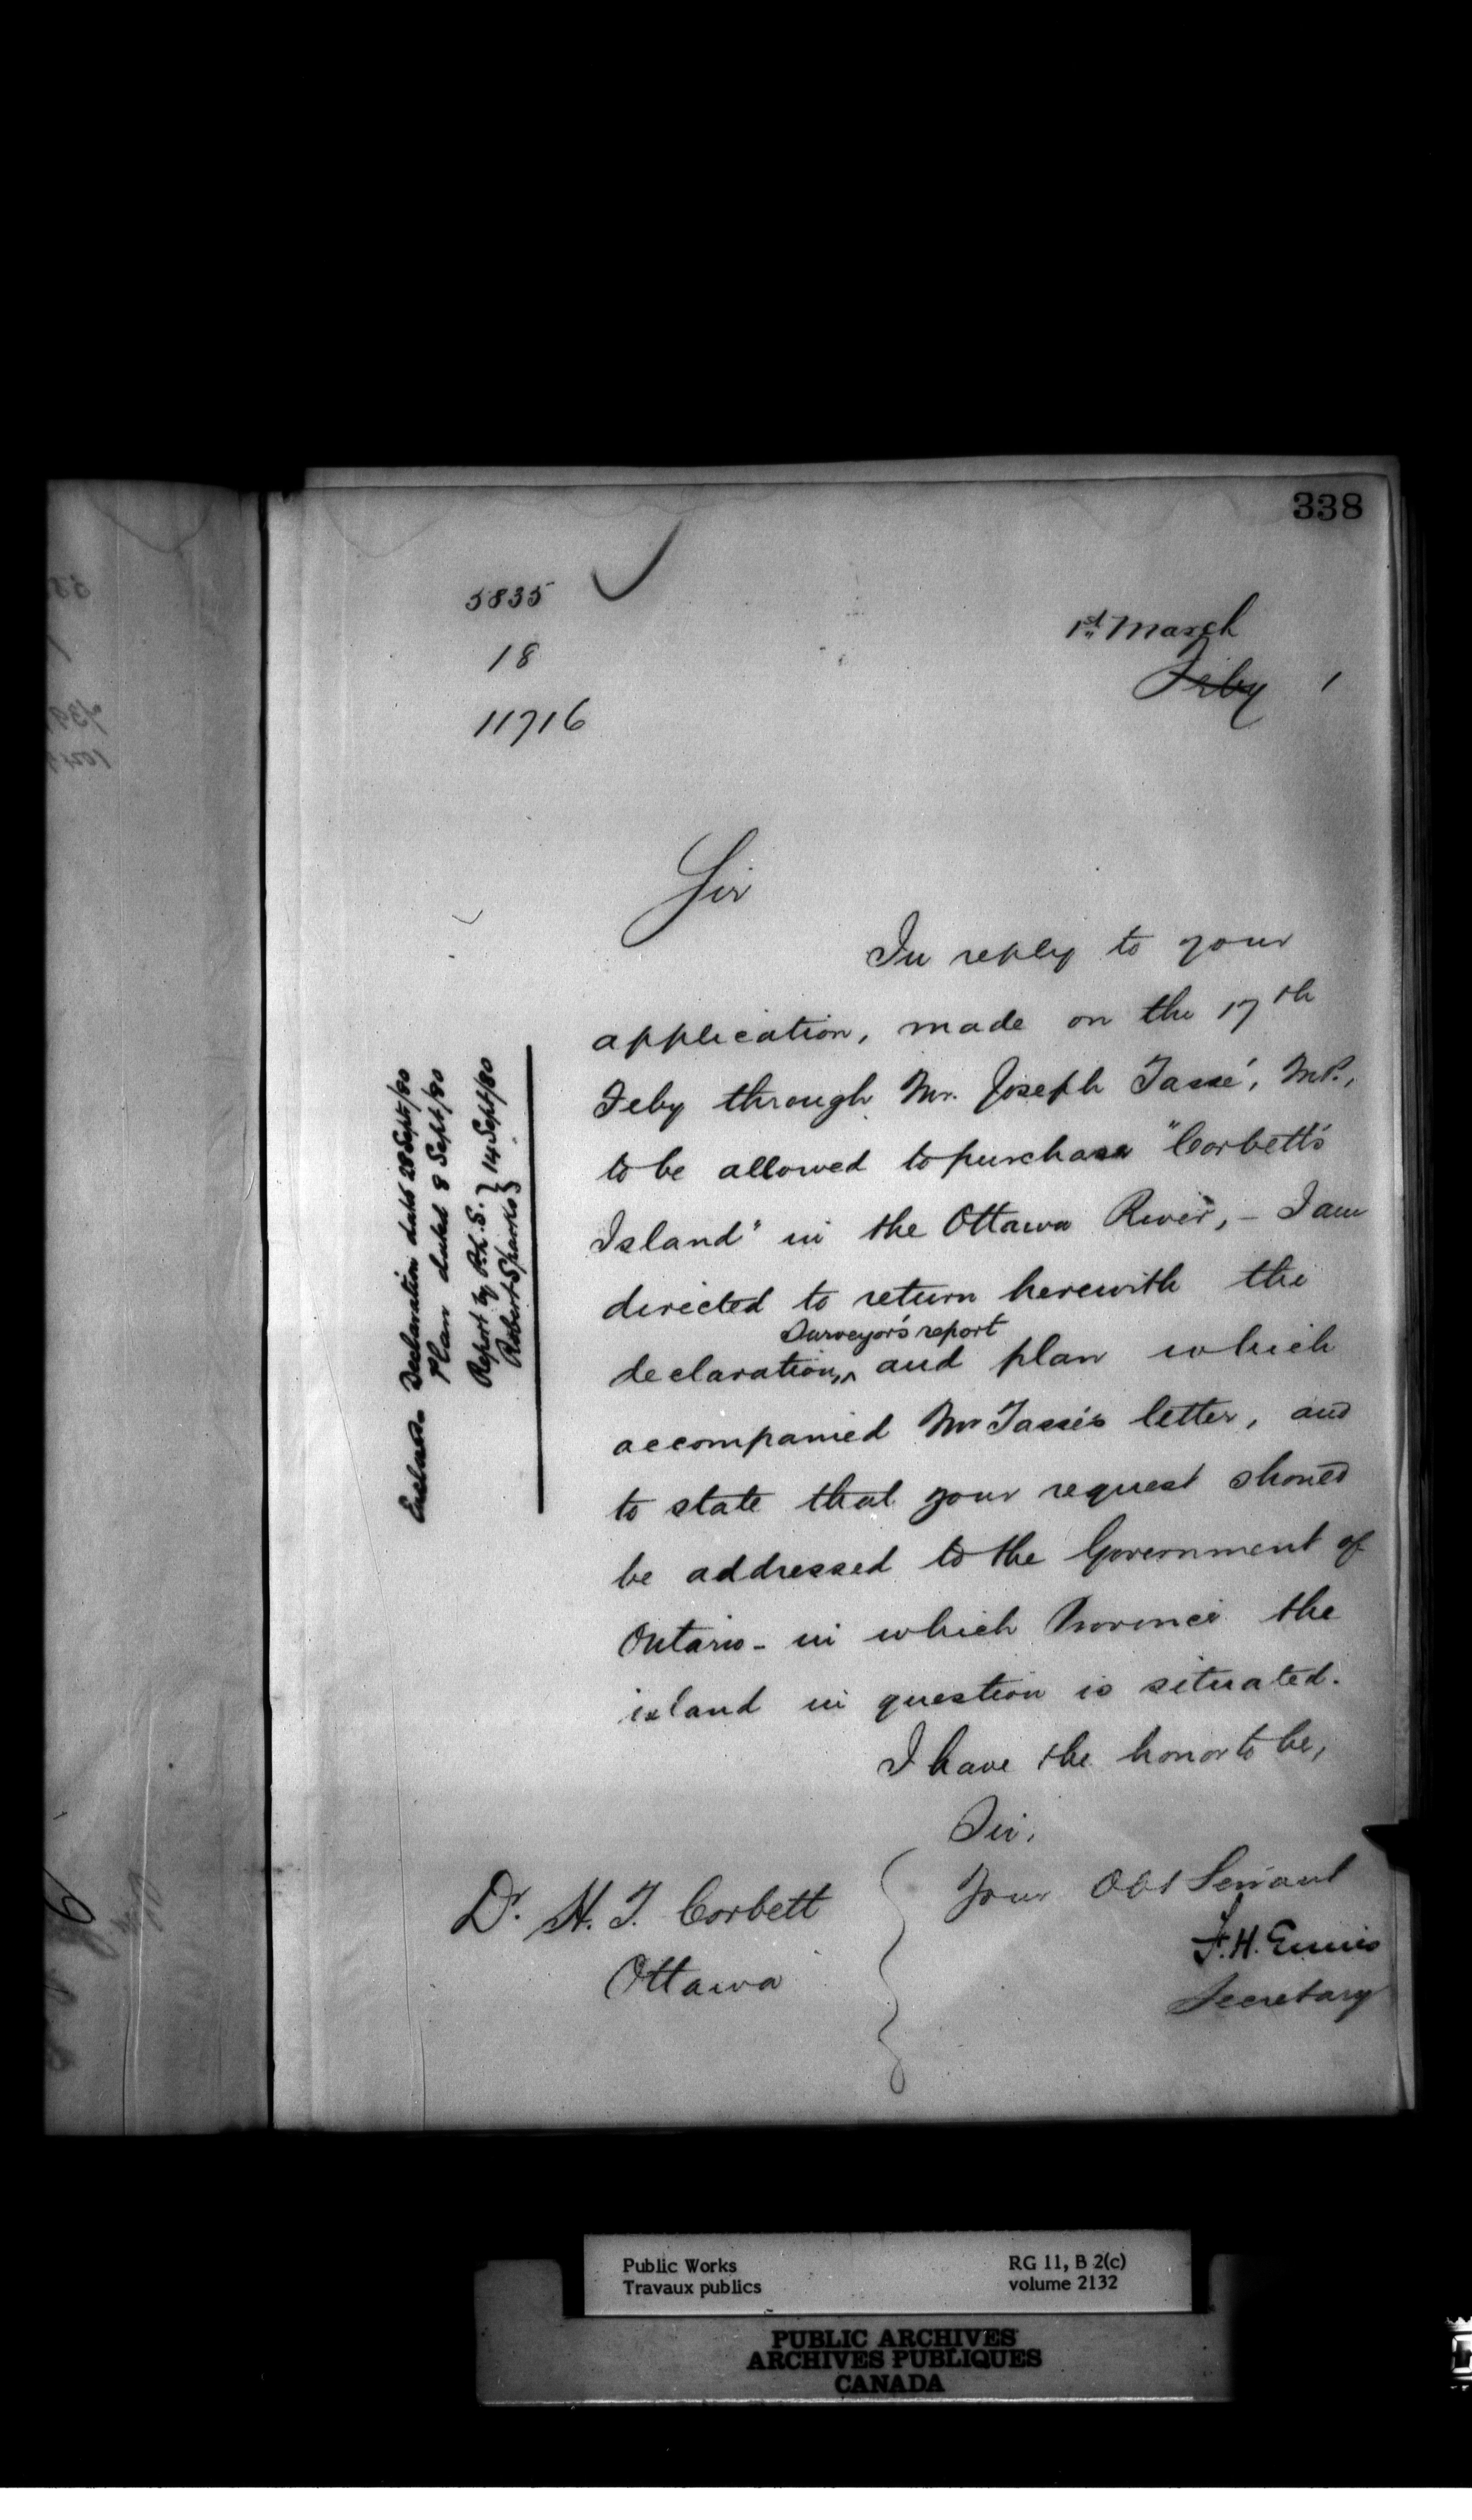 338
5835
18
11716
1st March
Feby 1
Sir
In reply to your
application, made on the 17th
Feby through Mr. Joseph Tassé, M.P.,
to be allowed to purchase "Corbett's
Island" in the Ottawa River, - I am
directed to return herewith the
Surveyor's report
declaration, ^ and plan which
accompanied Mr Tassé's letter, and
to state that your request should
be addressed to the Government of
Ontario - in which Province the
island in question is situated.
I have the honor to be,
Sir,
Your Obt Servant
F. H. Ennis
Secretary
Dr. H. F. Corbett
Ottawa
Declaration date 28 Sept/80
Plan dated 8 Sept/80
Report by P.L.S. } 14 Sept/80
Robert Sparks }
Public Works
Travaux publics
RG 11, B 2(c)
volume 2132
PUBLIC ARCHIVES
ARCHIVES PUBLIQUES
CANADA